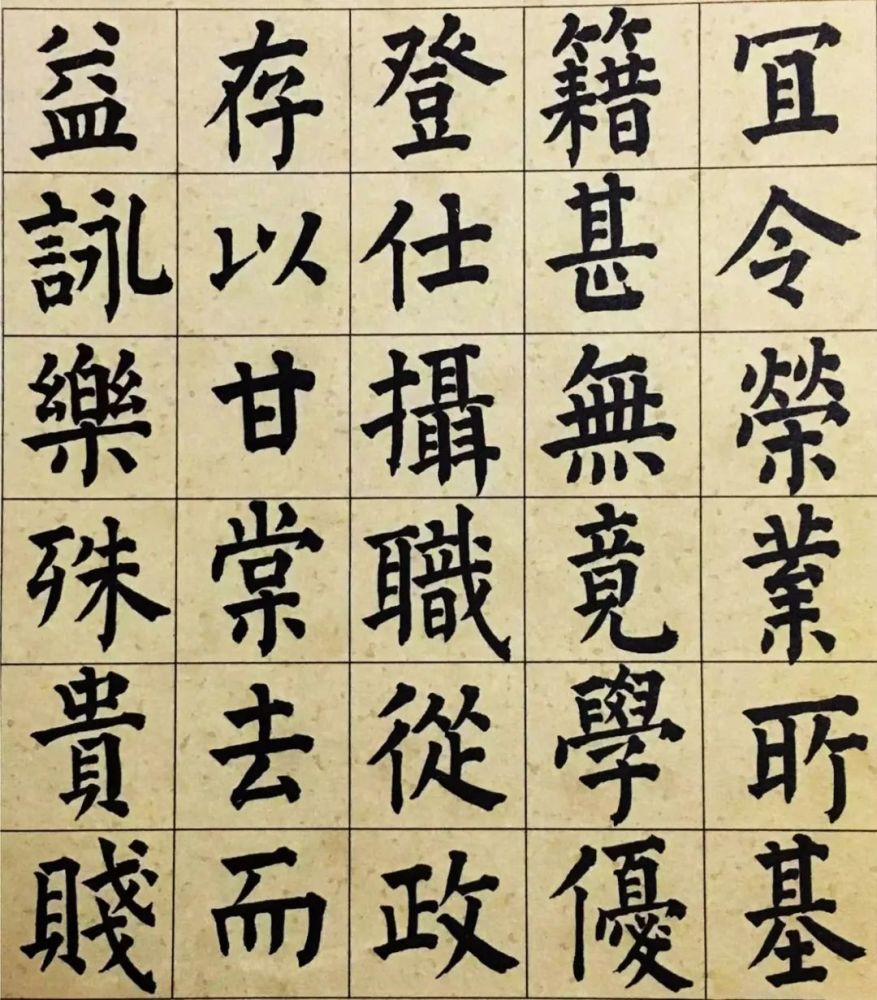 冝令榮業所基
籍甚無竟學優
登仕攝職從政
存以甘棠去而
益詠樂殊貴賤